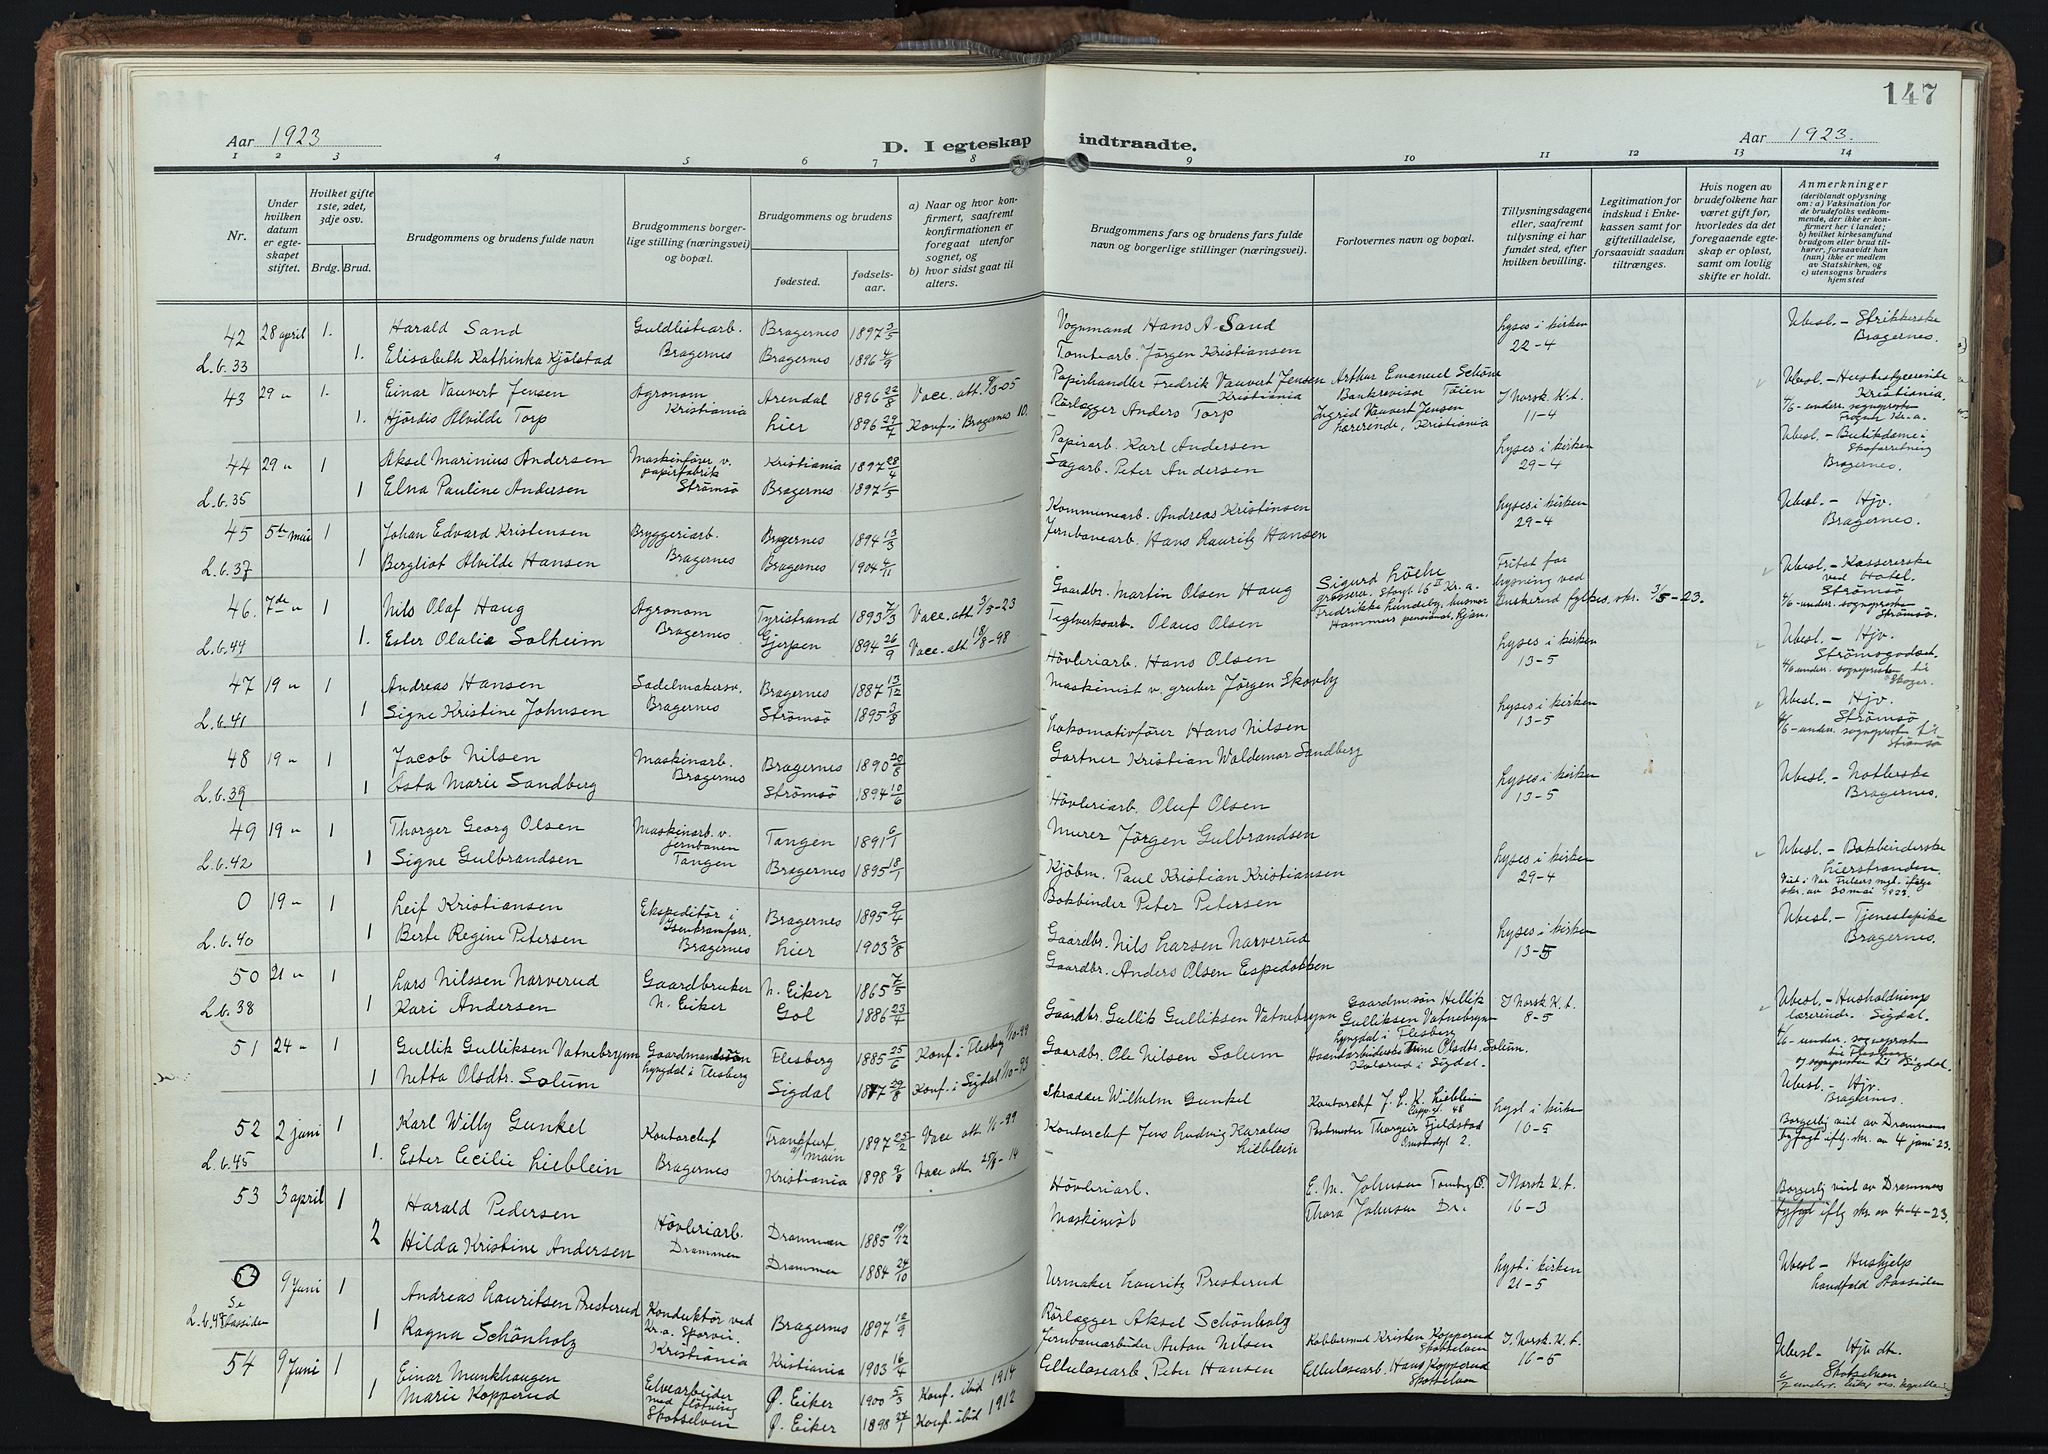 147
Aar 1923
D. I egteskap indtraadte.
Aar 1923.
1 2 3 4 5 6 7 8 9 10 11 12 13 14
Nr.
Under hvilken datum er egteskapet stiftet.
Hvilket gifte 1ste, 2det, 3dje osv.
Brdg. Brud.
Brudgommens og brudens fulde navn
Brudgommens borgerlige stilling (næringsvei) og bopæl.
Brudgommens og brudens
fødested.
fødselsaar.
a) Naar og hvor konfirmert, saafremt konfirmationen er foregaat utenfor sognet, og
b) hvor sidst gaat til alters.
Brudgommens fars og brudens fars fulde navn og borgerlige stillinger (næringsvei).
Forlovernes navn og bopæl.
Tillysningsdagene eller, saafremt tillysning ei har fundet sted, efter hvilken bevilling.
Legitimation for indskud i Enkekassen samt for giftetilladelse, forsaavidt saadan tiltrænges.
Hvis nogen av brudefolkene har været gift før, hvorledes da det foregaaende egteskap er opløst, samt om lovlig skifte er holdt.
Anmerkninger
(deriblandt oplysning om: a) Vaksination for de brudefolks vedkommende, der ikke er konfirmert her i landet; b) hvilket kirkesamfund brudgom eller brud tilhører, forsaavidt han (hun) ikke er medlem av Statskirken, og c) utensogns bruders hjemsted
42 28 april 1. Harald Sand Guldlistearb. Bragernes 1897 3/5 Vognmand Hans A. Sand Lyses i kirken 22-4 Ubesl. - Strikkerske Bragernes.
L.b. 33 1. Elisabeth Kathinka Kjölstad Bragernes Bragernes 1896 4/9 Tomtearb. Jörgen Kristiansen
43 29 " 1. Einar Vauvert Jensen Agronom Kristiania Arendal 1896 22/8 Vacc. att. 9/3-05 Papirhandler Fredrik Vauvert Jensen Kristiania Arthur Emanuel Schöne Bankrevisor Töien I Norsk K.t. 11-4 Ubesl. - Husbestyrerinde Kristiania.
1. Hjördis Alvilde Torp Lier 1896 29/7 Konf. i Bragernes 10. Rörlegger Anders Torp Ingrid Vauvert Jensen Lærerinde, Kristiania 4/6-underr. sogneprest Frogner Kr.a.
44 29 " 1 Aksel Marinius Andersen Maskinfører v. papirfabrik Strömsö Kristiania 1897 28/4 Papirarb. Karl Andersen Lyses i kirken 29-4 Ubesl. - Butikdame i Skoforretning Bragernes.
L.b. 35 1 Elna Pauline Andersen Bragernes 1897 1/5 Sagarb. Peter Andersen
45 5te mai 1 Johan Edvard Kristensen Bryggeriarb. Bragernes Bragernes 1894 13/3 Kommunearb. Andreas Kristinsen Lyses i kirken 29-4 Ubesl. - Hjv. Bragernes.
L.b. 37 1 Bergliot Alvilde Hansen Bragernes 1904 4/11 Jernbanearb. Hans Lauritz Hansen
46. 7de " 1 Nils Olaf Haug Agronom Bragernes Tyristrand 1893 7/3 Vacc. att. 3/5-23 Gaardbr. Martin Olsen Haug Sigurd Löche grosserer, Kr.a. Fritat for lysning ved Buskerud fylkes skr. 3/5-23. Ubesl. - Kassererske ved Hotel. Strömsö
L.b. 44 1. Ester Olalie Solheim Gjerpen 1894 26/9 Vacc. att. 18/8-98 Teglverksarb. Olaus Olsen Fredrikke Lundeby, 4/6-underr. sogneprest Strömsö.
47 19 " 1 Andreas Hansen Sadelmakersv. Bragernes Bragernes 1887 13/12 Hövleriarb. Hans Olsen Lyses i kirken 13-5 Ubesl. - Hjv. Strömsgodset.
L.b. 41 1 Signe Kristine Johnsen Strömsö 1895 3/8 Maskinist v. gruber Jörgen Skovby 4/6-underr. sognepresten til Skoger.
48 19 " 1 Jacob Nilsen Maskinarb. Bragernes Bragernes 1890 20/8 Lokomotivfører Hans Nilsen Lyses i kirken 13-5 Ubesl. - Hjv. Strömsö
L.b. 39 1 Asta Marie Sandberg Strömsö 1894 10/6 Gartner Kristian Waldemar Sandberg 4/6-underr. sogneprest til Strömsö
49 19 " 1 Thorger Georg Olsen Maskinarb. v. jernbanen Tangen Tangen 1891 6/1 Hövleriarb. Oluf Olsen Lyses i kirken 13-5 Ubesl. - Notlerske Bragernes.
L.b. 42 1 Signe Gulbrandsen Bragernes 1895 18/1 Murer Jörgen Gulbrandsen
0 19 " 1 Leif Kristiansen Ekspeditör i Isenkramforr. Bragernes Bragernes 1895 9/4 Kjöbm. Paul Kristian Kristiansen Lyses i kirken 29-4 Ubesl. - Bokbinderske Lierstranden
L.b. 40 1 Berte Regine Petersen Lier 1903 3/8 Bokbinder Peter Petersen Viet i Vor Frelsers mgt. ifølge skr. av 30 mai 1923.
50 21 " 1 Lars Nilssen Narverud Gaardbruker N. Eiker N. Eiker 1865 7/5 Gaardbr. Nils Larsen Narverud Lyses i kirken 13-5 Ubesl. - Tjenestepike Bragernes.
L.b. 38 1 Kari Andersen Gol 1886 23/4 Gaardbr. Anders Olsen Espedokken
51 24 " 1 Gullik Gulliksen Vatnebrynn Gaardmandssøn Lyngdal i Flesberg Flesberg 1885 25/6 Konf. i Flesberg 1/10-99 Gaardbr. Gullik Gulliksen Vatnebrynn Gaardm.søn Hellik Gulliksen Vatnebrynn Lyngdal i Flesberg I Norsk K.t. 8-5 Ubesl. - Husholdningslærerinde. Sigdal.
1 Netta Olsdtr. Solum Sigdal 1877 29/8 Konf. i Sigdal 1/10-93 Gaardbr. Ole Nilsen Solum Haandarbeiderske Trine Olsdtr. Solum. i Sigdal. 4/6-underr. sogneprest til Flesberg og sogneprest til Sigdal.
52 2 juni 1 Karl Willy Gunkel Kontorchef Bragernes Frankfurt a/main 1897 25/2 Vacc att. 1/1-99 Skrædder Wilhelm Gunkel Kontorchef J. L. K. Lieblein Lyst i kirken 10-5 Ubesl. - Hjv. Bragernes.
L.b. 45 1. Ester Cecilie Lieblein Kristiania 1898 9/8 Vacc att. 25/8-14 Kontorchef Jens Ludvig Karolus Lieblein Postmester Thorgeir Fjeldstad Borgerlig viet av Drammens byfogt iflg. skr. av 4 juni 23.
53 3 april 1 Harald Pedersen Hövleriarb. Drammen Drammen 1885 19/12 Hövleriarb. E. M. Johnsen I Norsk K.t. 16-3 Borgerlig viet av Drammens byfogt iflg skr. av 4-4-23.
2 Hilda Kristine Andersen Drammen 1884 24/10 Maskinist Thora Johnsen Dr.
9 Juni 1 Andreas Lauritsen Presterud Konduktör ved Kr.a. Sporvei. Kristiania Bragernes 1897 12/9 Urmaker Lauritz Presterud Lyst i kirken 21-5 Ubesl - Hushjelp
Se L.b. 48 1 Ragna Schönholz Kristiania 1903 16/4 Rörlegger Aksel Schönholz
54 9 Juni 1 Einar Munkhaugen Elvearbeider med flötning Skotselven Ø. Eiker 1900 5/3 Konf. ibid 1914 Jernbanearbeider Anton Nilsen Kristen Kopperud Skotselven I Norsk K.t. 16-5 Ubesl - Hjv. dt. Skotselven
1 Marie Kopperud Ø. Eiker 1898 27/1 Konf. ibid 1912 Cellulosearb. Peter Hansen Cellulosearb. Hans Kopperud Skotselven 6/7 underr. Eiker res. kapellan